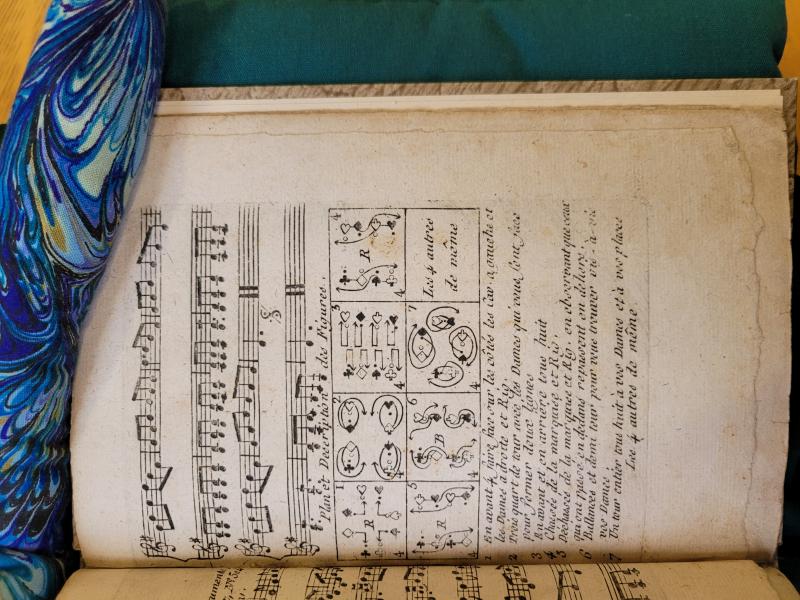 Plan et Description des Figures.
1
2
3
4
R
R
4
4
4
4
5
6
7
Les 4 autres
de même
R
B
4
4
4
1 En avant 4, faire face sur les côtés les Cav. a gauche et
les Dames a droite et Rig.
2 Trois quart de tour avec les Dames qui vous font face
pour former deux lignes
3 En avant et en arrière tous huit
4 Chassée de la marquise et Rig.
5 Dechassée de la marquise et Rig. en observant que ceux
qui ont passé en dedans repassent en dehors
6 Ballancés et demi tour pour vous trouver vis-à-vis
vos Dames
7 Un tour entier tous huit à vos Dames et à vos places
Les 4 autres de même